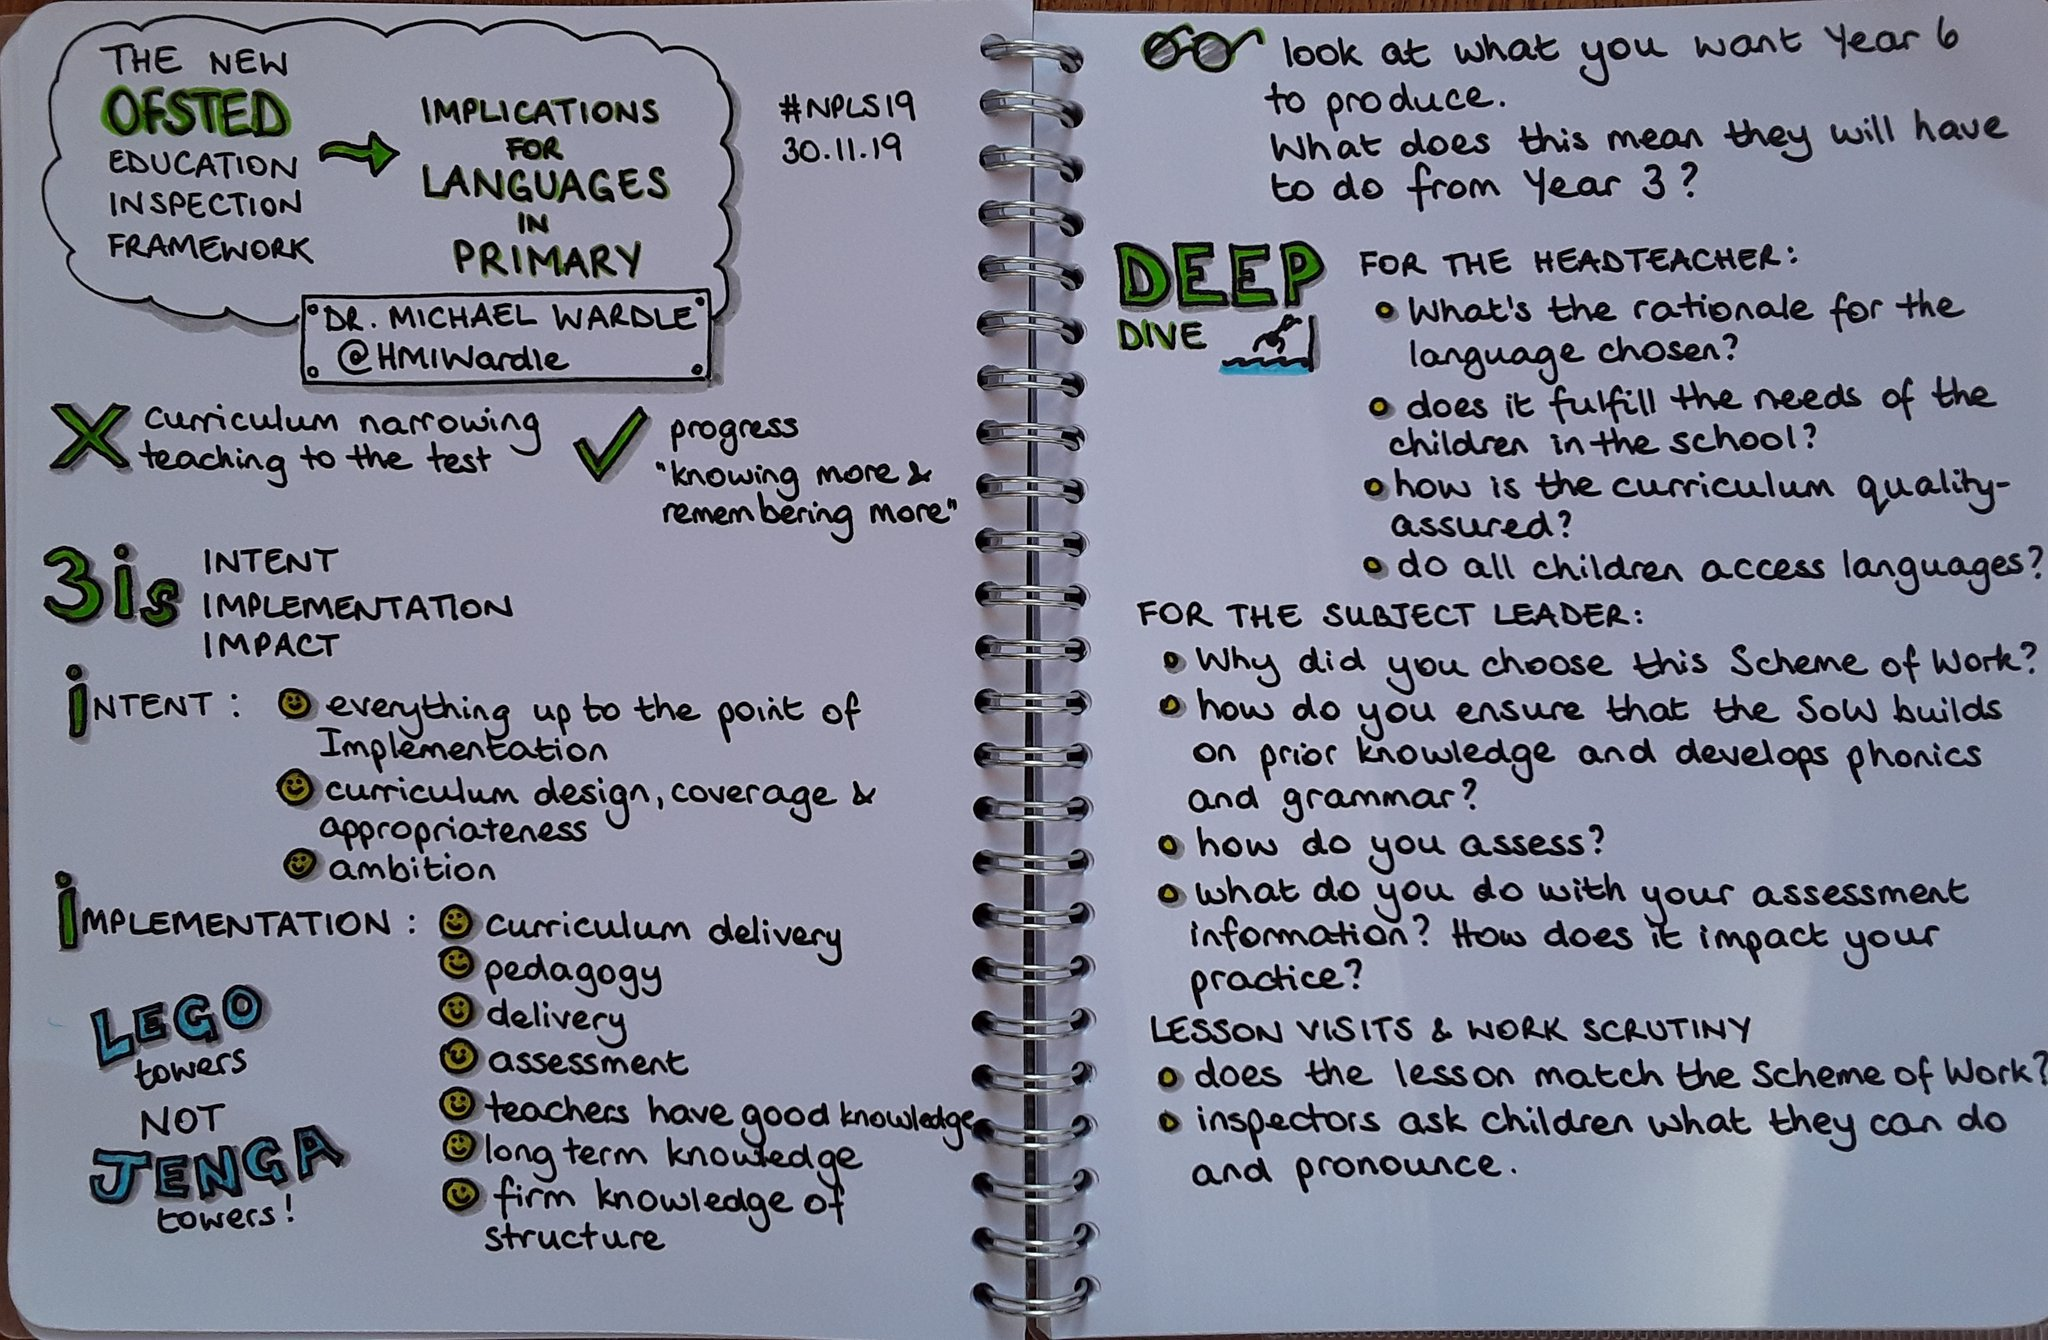 THE NEW
OFSTED
EDUCATION
INSPECTION
FRAMEWORK
IMPLICATIONS
FOR
LANGUAGES
IN
PRIMARY
DR. MICHAEL WARDLE
@HMIWardle
#NPLS19
30.11.19
curriculum narrowing
teaching to the test
progress
"knowing more &
remembering more"
3is
INTENT
IMPLEMENTATION
IMPACT
iNTENT:
everything up to the point of
Implementation
curriculum design, coverage &
appropriateness
ambition
iMPLEMENTATION:
curriculum delivery
pedagogy
delivery
assessment
teachers have good knowledge
long term knowledge
firm knowledge of
structure
LEGO
towers
NOT
JENGA
towers!
look at what you want Year 6
to produce.
What does this mean they will have
to do from Year 3?
DEEP
DIVE
FOR THE HEADTEACHER:
What's the rationale for the
language chosen?
does it fulfill the needs of the
children in the school?
how is the curriculum quality-
assured?
do all children access languages?
FOR THE SUBJECT LEADER:
Why did you choose this Scheme of Work?
how do you ensure that the SoW builds
on prior knowledge and develops phonics
and grammar?
how do you assess?
what do you do with your assessment
information? How does it impact your
practice?
LESSON VISITS & WORK SCRUTINY
does the lesson match the Scheme of Work?
inspectors ask children what they can do
and pronounce.